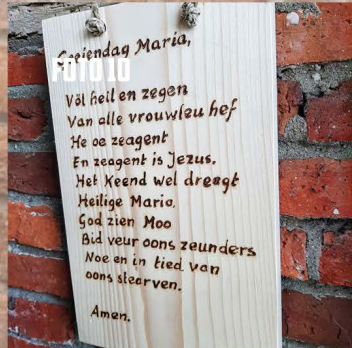 Goeiendag Maria,
FOTO 10
Völ heil en zegen
Van alle vrouwleu hef
He oe zeagent
En zeagent is Jezus.
Het Keend wel dreagt
Heilige Maria.
God zien Moo
Bid veur oons zeunders
Noe en in tied van
oons stearven.
Amen.